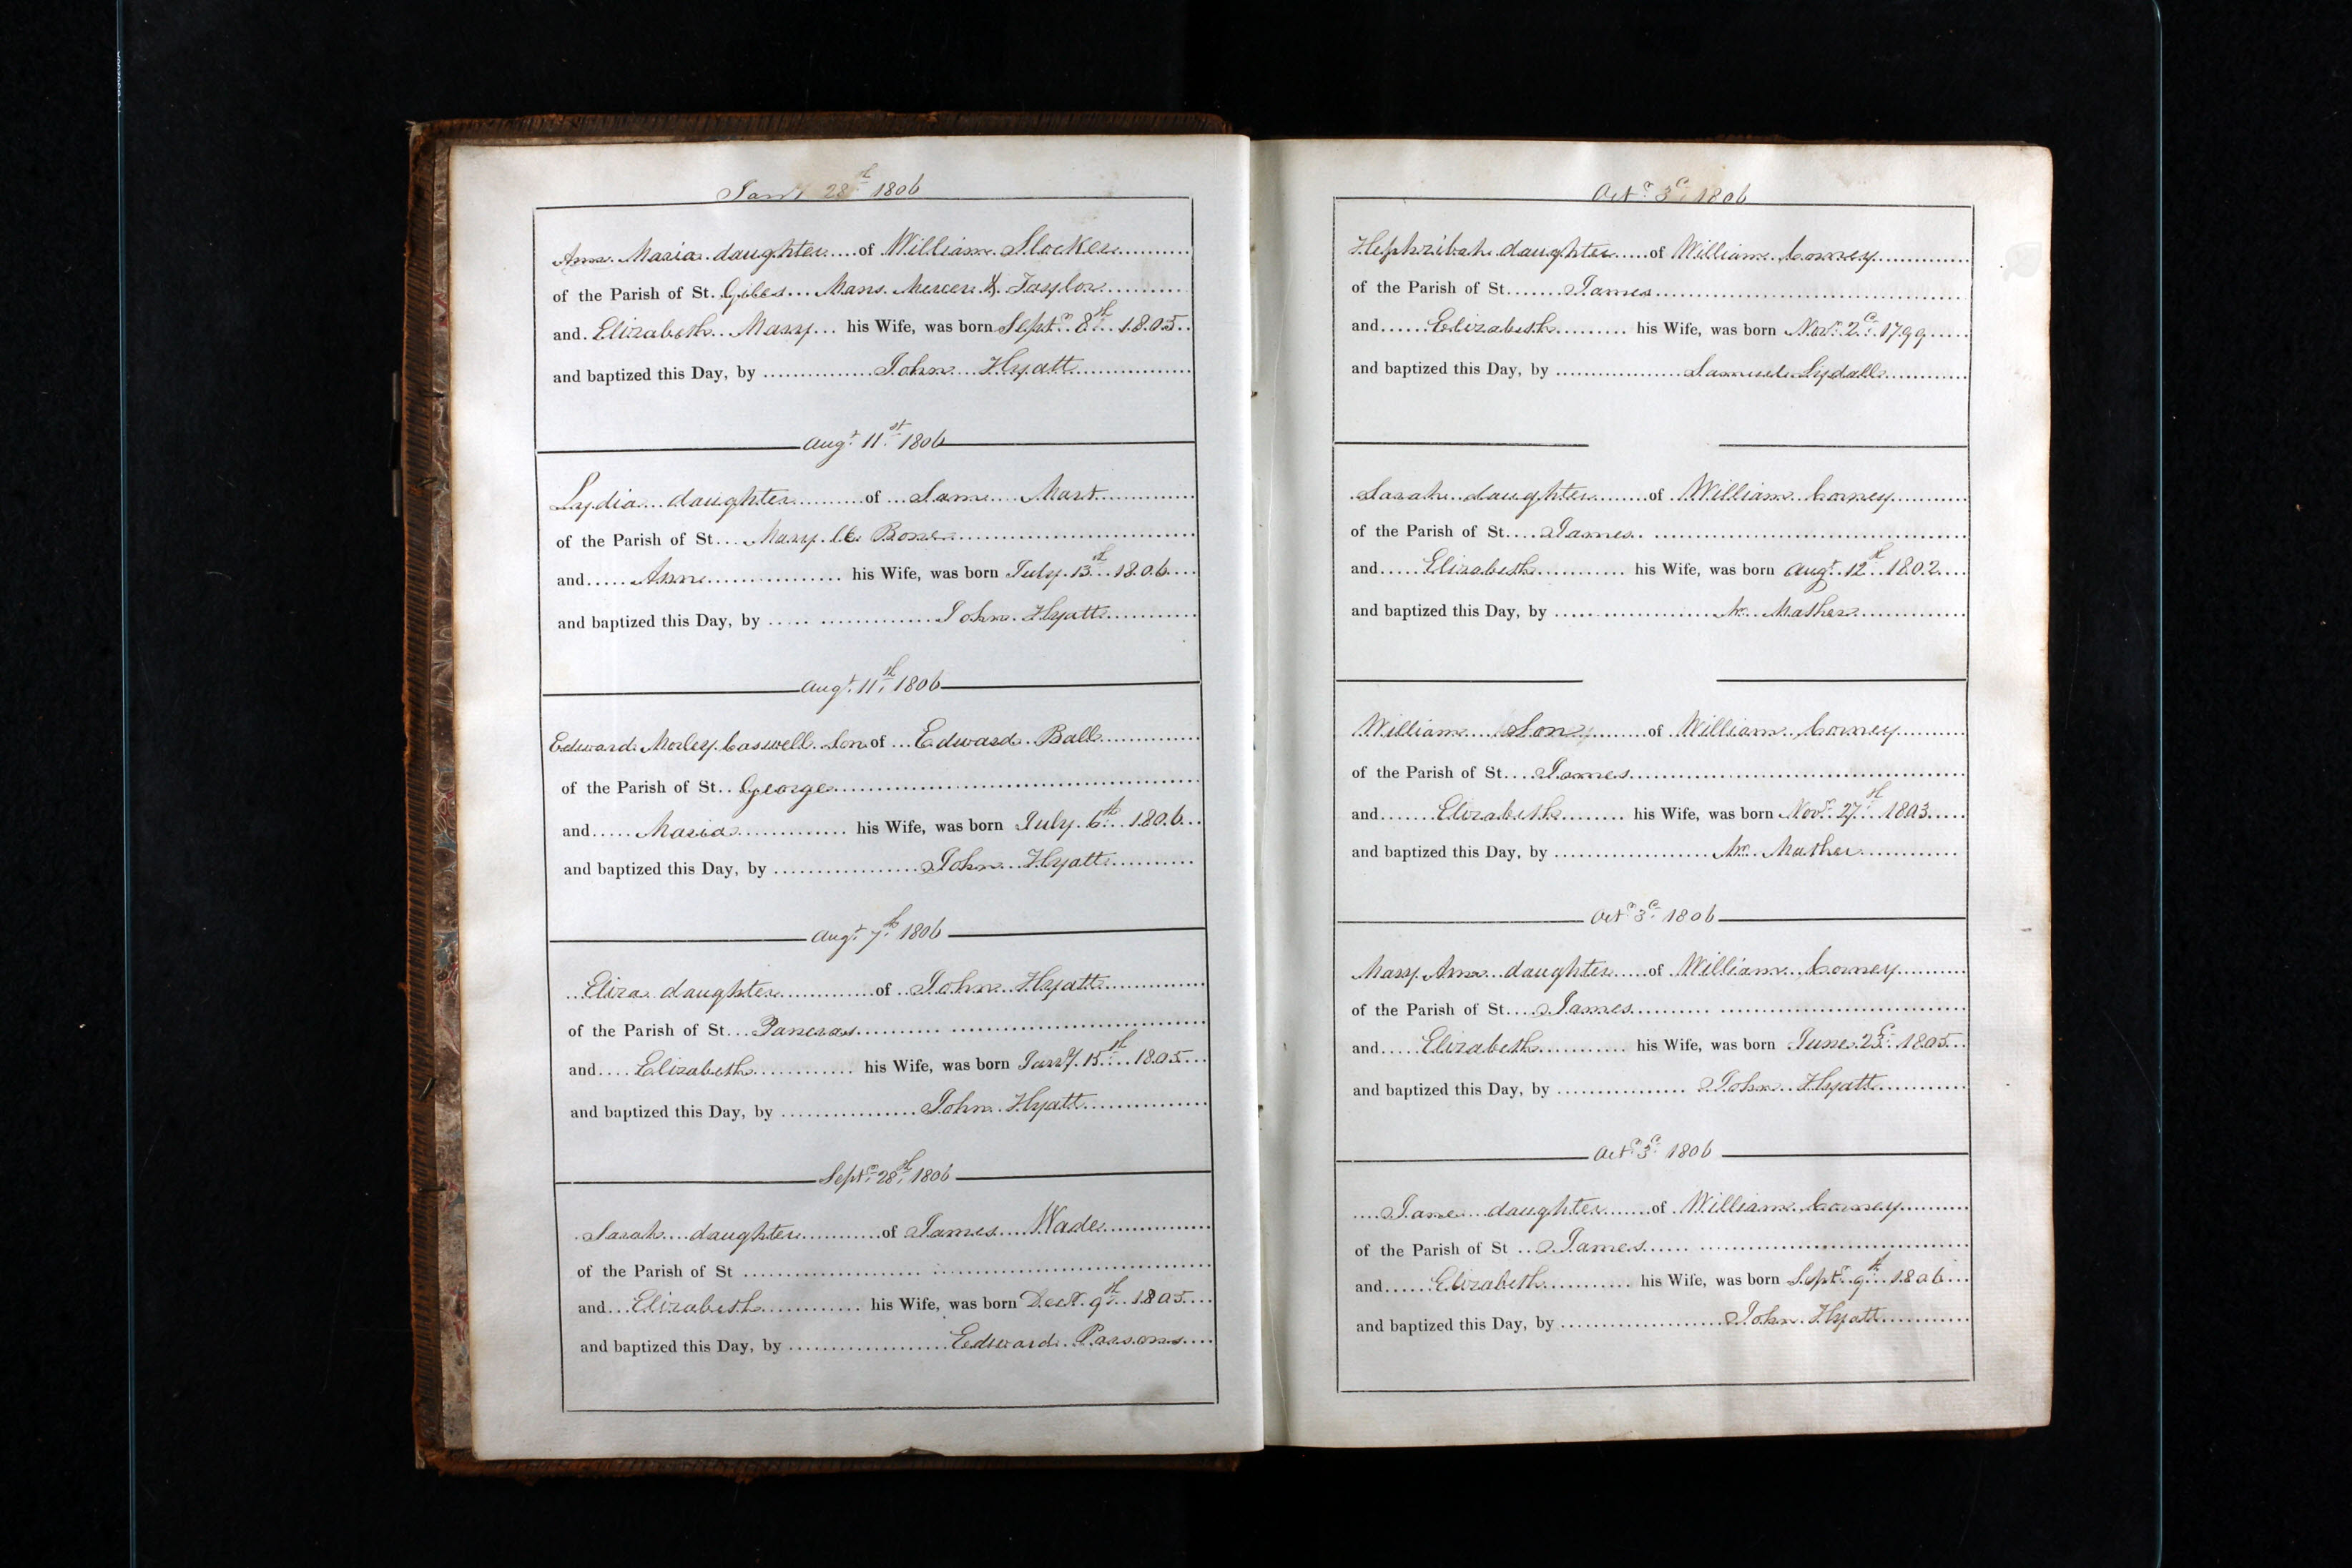 Jany 28th 1806
Ann Maria daughter of William Slocker
of the Parish of St. Giles Mans Mercer & Taylor
and Elizabeth Mary his Wife, was born Septr 8th 1805
and baptized this Day, by John Hyatt
Augt 11st 1806
Lydia daughter of Mart
of the Parish of St Mary le Bone
and Anne his Wife, was born July 13th 1806
and baptized this Day, by John Hyatt
Augt 11th 1806
Edward Morley Caswell Son of Edward Ball
of the Parish of St George
and Maria his Wife, was born July 6th 1806
and baptized this Day, by John Hyatt
Augt 7th 1806
Eliza daughter of John Hyatt
of the Parish of St Pancras
and Elizabeth his Wife, was born Jany 15th 1805
and baptized this Day, by John Hyatt
Septr 28th 1806
Sarah daughter of James Wade
of the Parish of St
and Elizabeth his Wife, was born Decr 9th 1805
and baptized this Day, by Edward Parsons
Octr 3d 1806
Hephzibah daughter of William Corney
of the Parish of St James
and Elizabeth his Wife, was born Novr 2d 1799
and baptized this Day, by Samuel Lydall
Sarah daughter of William Corney
of the Parish of St James
and Elizabeth his Wife, was born Augt 12th 1802
and baptized this Day, by Mr Mather
William Son of William Corney
of the Parish of St James
and Elizabeth his Wife, was born Novr 27th 1803
and baptized this Day, by Mr Mather
Octr 3d 1806
Mary Ann daughter of William Corney
of the Parish of St James
and Elizabeth his Wife, was born June 23d 1805
and baptized this Day, by John Hyatt
Octr 3d 1806
Jane daughter of William Corney
of the Parish of St James
and Elizabeth his Wife, was born Septr 9th 1806
and baptized this Day, by John Hyatt